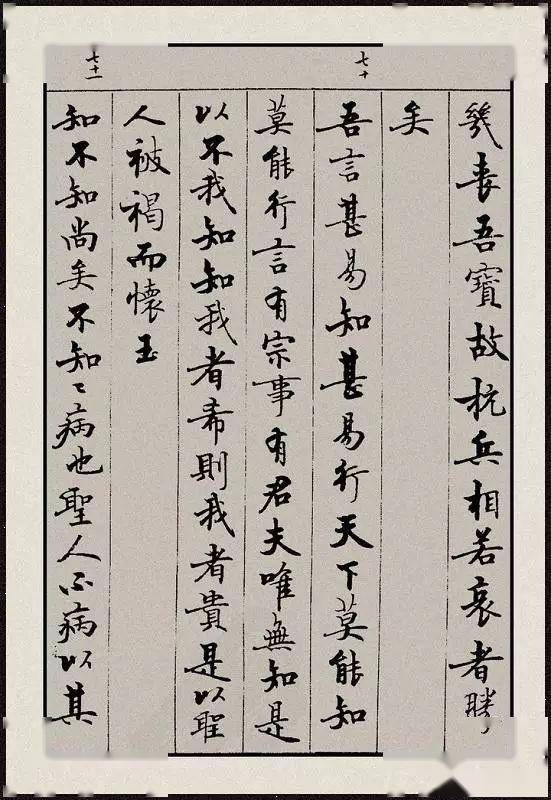 幾丧吾寶故抗兵相若哀者勝
矣
七十
吾言甚易知甚易行天下莫能知
莫能行言有宗事有君夫唯無知是
以不我知知我者希則我者貴是以聖
人被褐而懷玉
七十一
知不知尚矣不知〻病也聖人不病以其